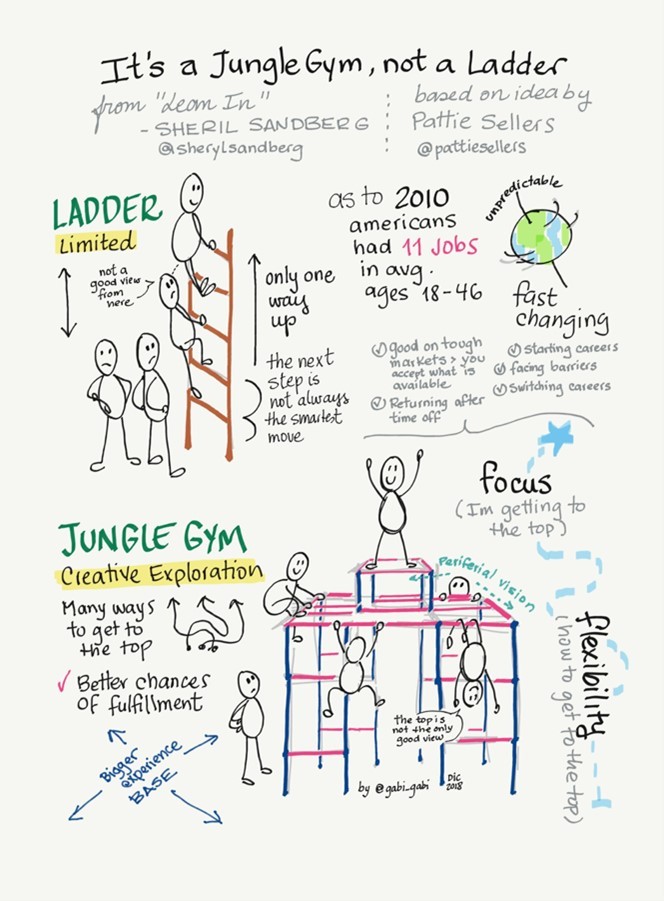 It's a Jungle Gym, not a Ladder
from "Lean In"
- SHERIL SANDBERG
@sherylsandberg
based on idea by
Pattie Sellers
@pattiesellers
LADDER
Limited
not a
good view
from
here
only one
way
up
the next
step is
not always
the smartest
move
as to 2010
americans
had 11 Jobs
in avg.
ages 18-46
unpredictable
fast
changing
good on tough
markets > you
accept what is
available
Returning after
time off
Starting careers
facing barriers
Switching careers
focus
(Im getting to
the top)
JUNGLE GYM
Creative Exploration
Many ways
to get to
the top
Better chances
of fulfillment
Bigger
experience
BASE
Periferial vision
the top is
not the only
good view
flexibility
(how to get to the top)
by @gabi_gabi
DIC
2018